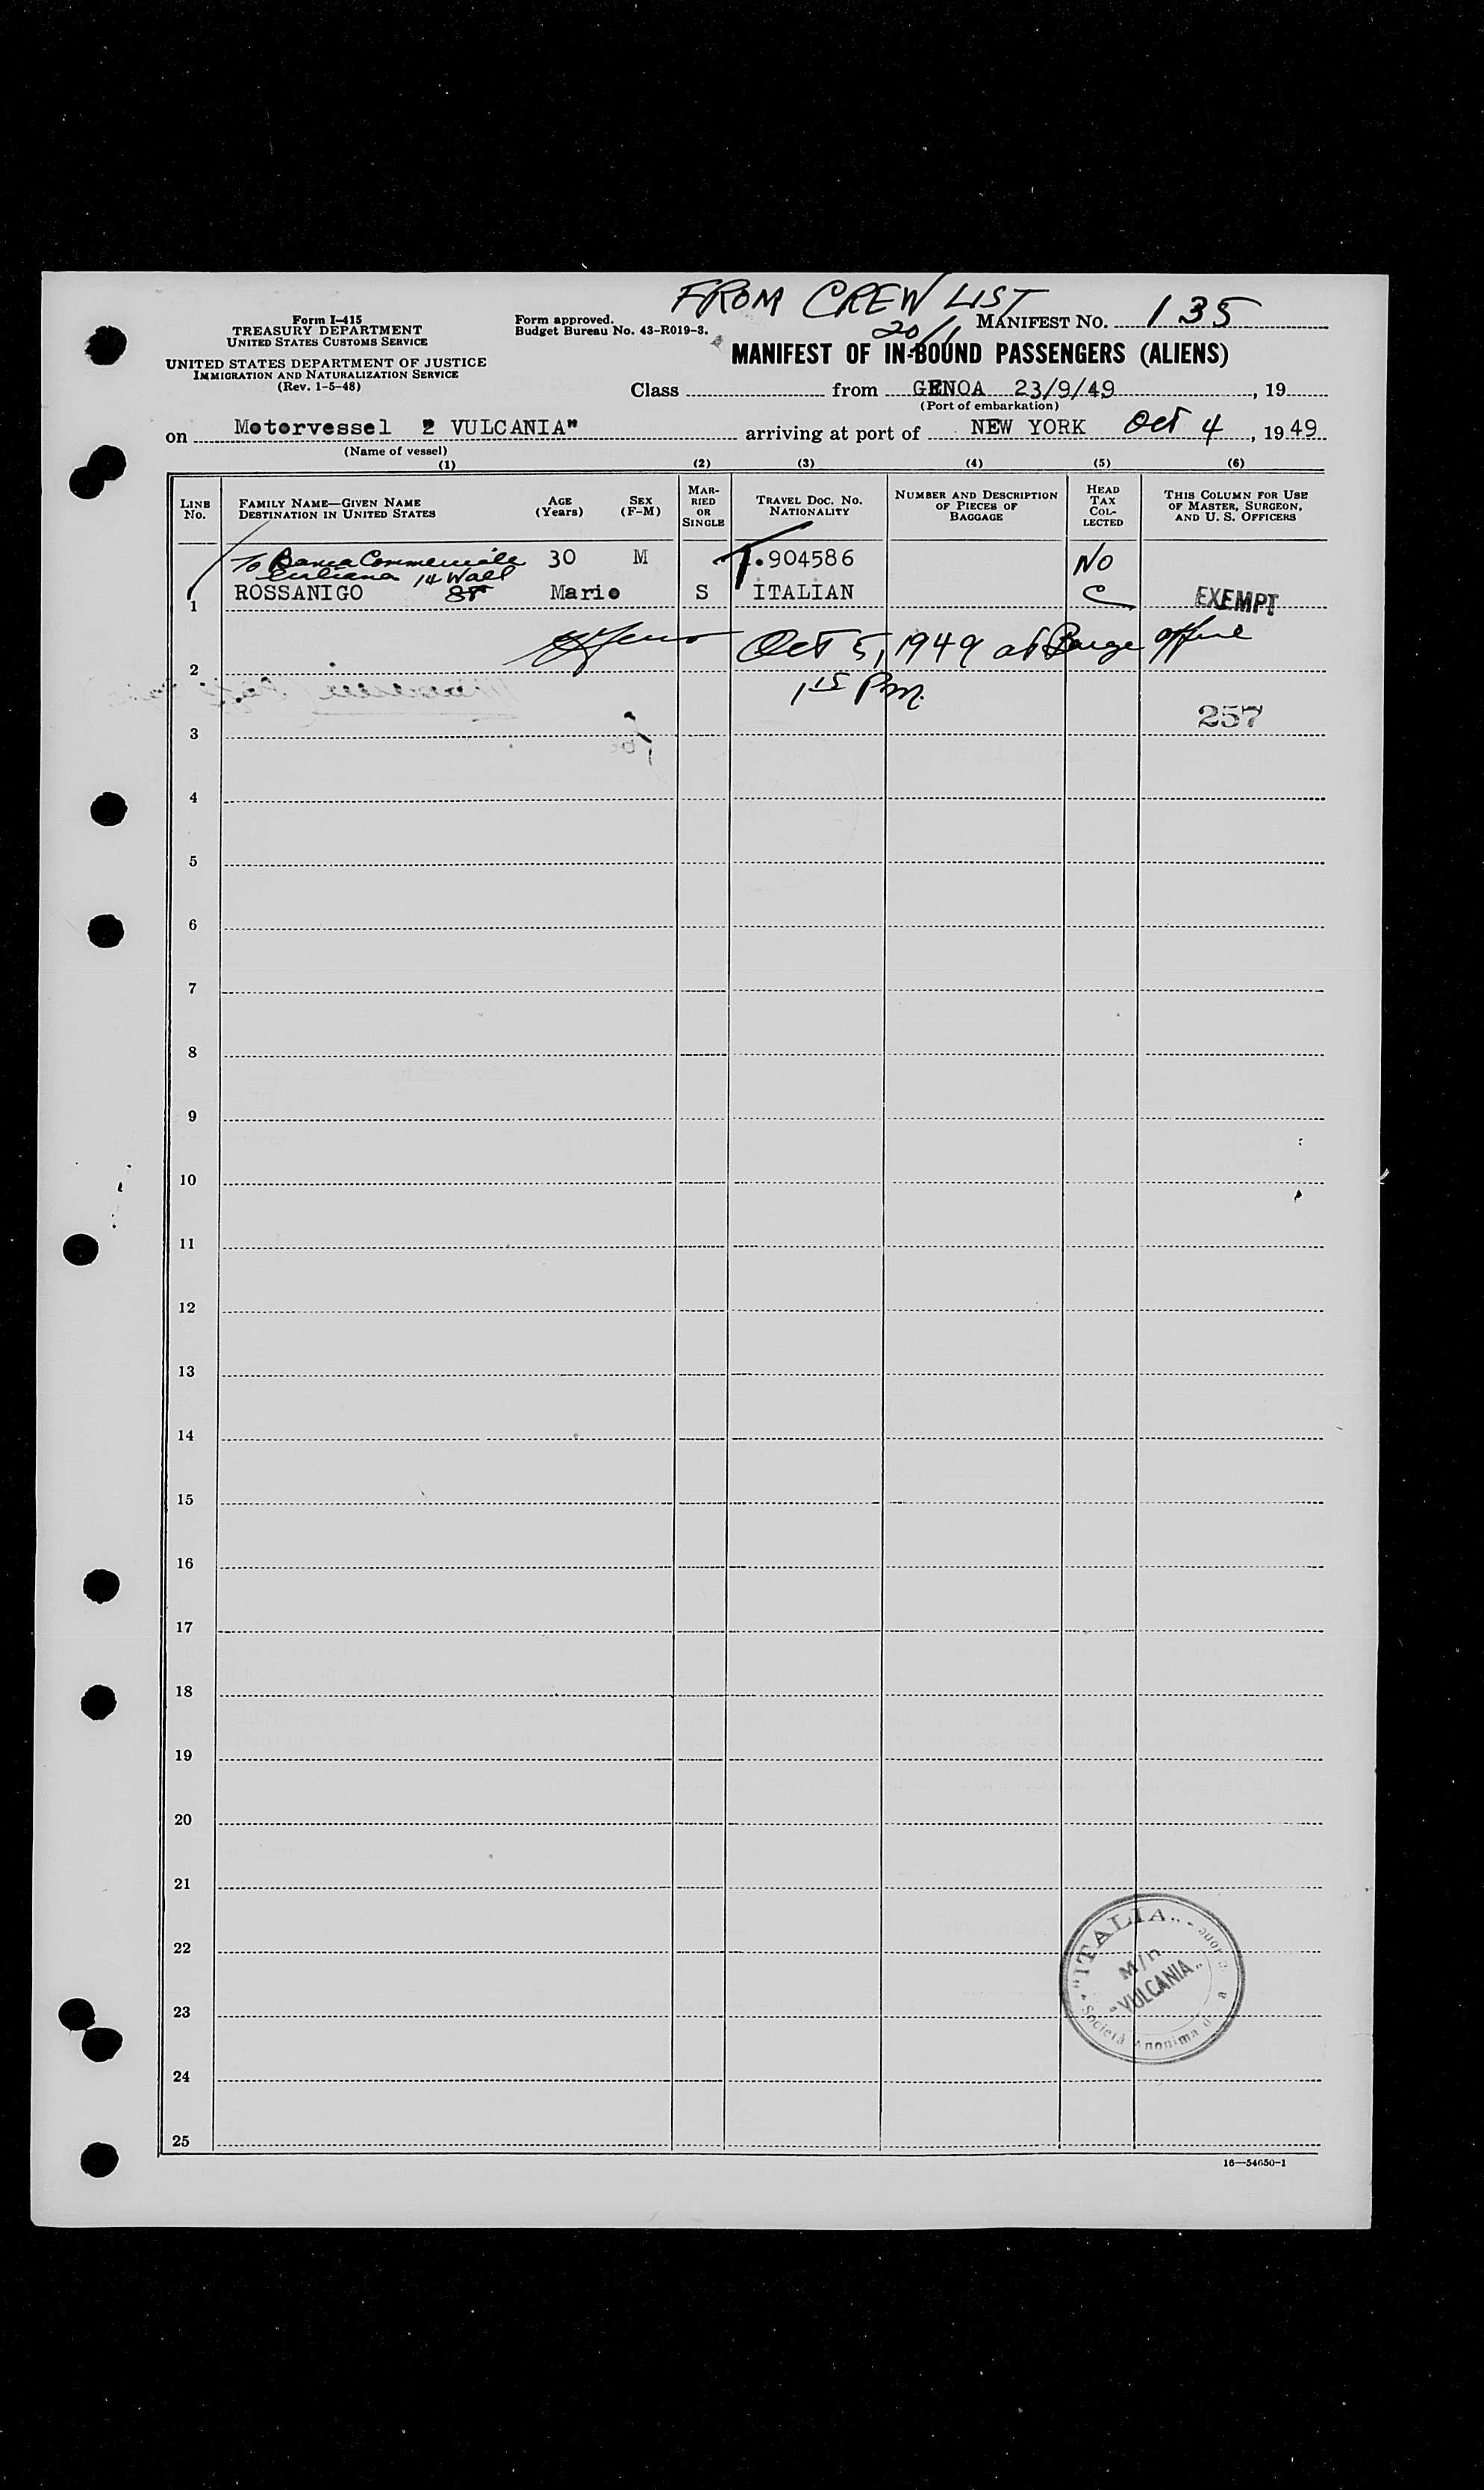 FROM CREW LIST
20/1
Form I-415
TREASURY DEPARTMENT
UNITED STATES CUSTOMS SERVICE
UNITED STATES DEPARTMENT OF JUSTICE
IMMIGRATION AND NATURALIZATION SERVICE
(Rev. 1-5-48)
Form approved.
Budget Bureau No. 43-R019-3.
MANIFEST NO. 135
MANIFEST OF IN-BOUND PASSENGERS (ALIENS)
Class from GENOA 23/9/49, 19
(Port of embarkation)
on Motorvessel " VULCANIA" arriving at port of NEW YORK Oct 4, 1949
(Name of vessel)
(1) (2) (3) (4) (5) (6)
LINE NO.
FAMILY NAME—GIVEN NAME
DESTINATION IN UNITED STATES
AGE (Years)
SEX (F-M)
MARRIED OR SINGLE
TRAVEL DOC. NO.
NATIONALITY
NUMBER AND DESCRIPTION OF PIECES OF BAGGAGE
HEAD TAX COLLECTED
THIS COLUMN FOR USE OF MASTER, SURGEON, AND U. S. OFFICERS
To Banca Commerciale 30 M 904586 NO
14 Wall
1 ROSSANIGO Mario S ITALIAN C EXEMPT
2 Oct 5, 1949 at Barge Office
1 15 P.m.
3 257
4
5
6
7
8
9
10
11
12
13
14
15
16
17
18
19
20
21
22
23
24
25
"ITALIA"
M/n
"VULCANIA"
Società Anonima
16—54650-1